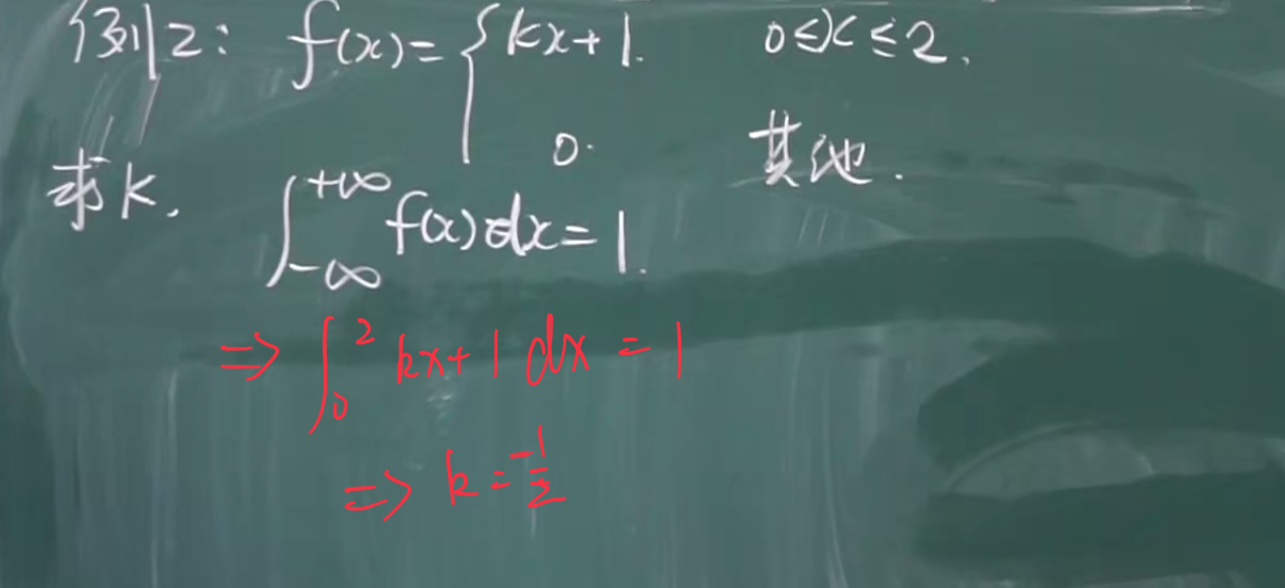 例2: f(x)={kx+1. 0≤x≤2.
0. 其他.
求k. ∫_{-∞}^{+∞} f(x)dx=1.
⇒ ∫_0^2 kx+1 dx = 1
⇒ k=-1/2